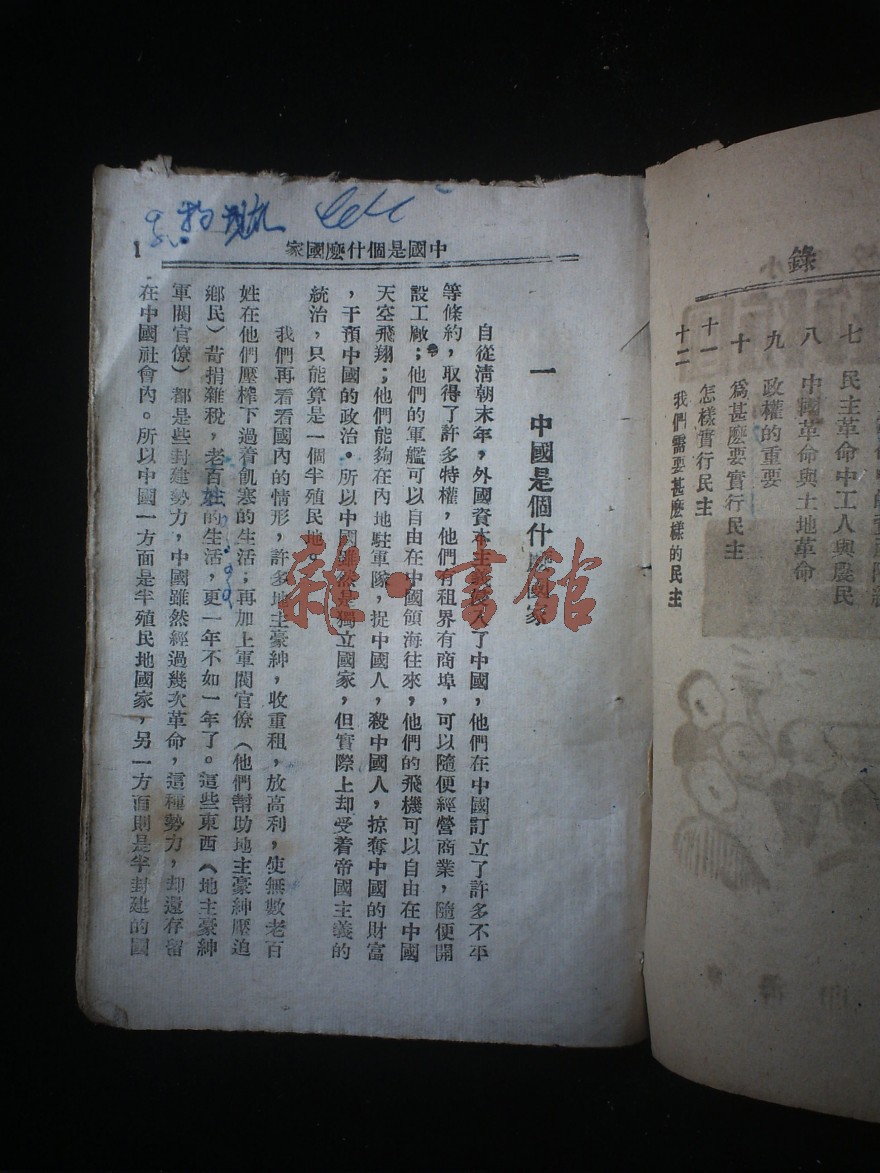 錄
七 民主革命中工人與農民
八 中國革命與土地革命
九 政權的重要
十 爲甚麼要實行民主
十一 怎樣實行民主
十二 我們需要甚麼樣的民主
中國是個什麼國家
1
一 中國是個什麼國家
自從清朝末年，外國資本主義侵入了中國，他們在中國訂立了許多不平
等條約，取得了許多特權，他們有租界有商埠，可以隨便經營商業，隨便開
設工廠；他們的軍艦可以自由在中國領海往來，他們的飛機可以自由在中國
天空飛翔；他們能夠在內地駐軍隊，捉中國人，殺中國人，掠奪中國的財富
，干預中國的政治。所以中國雖然是獨立國家，但實際上却受着帝國主義的
統治，只能算是一個半殖民地。
我們再看看國內的情形，許多地主豪紳，收重租，放高利，使無數老百
姓在他們壓榨下過着飢塞的生活；再加上軍閥官僚（他們幫助地主豪紳壓迫
鄉民）苛捐雜稅，老百姓的生活，更一年不如一年了。這些東西（地主豪紳
軍閥官僚）都是些封建勢力，中國雖然經過幾次革命，這種勢力，却還存留
在中國社會內。所以中國一方面是半殖民地國家，另一方面則是半封建的國
雜·書館